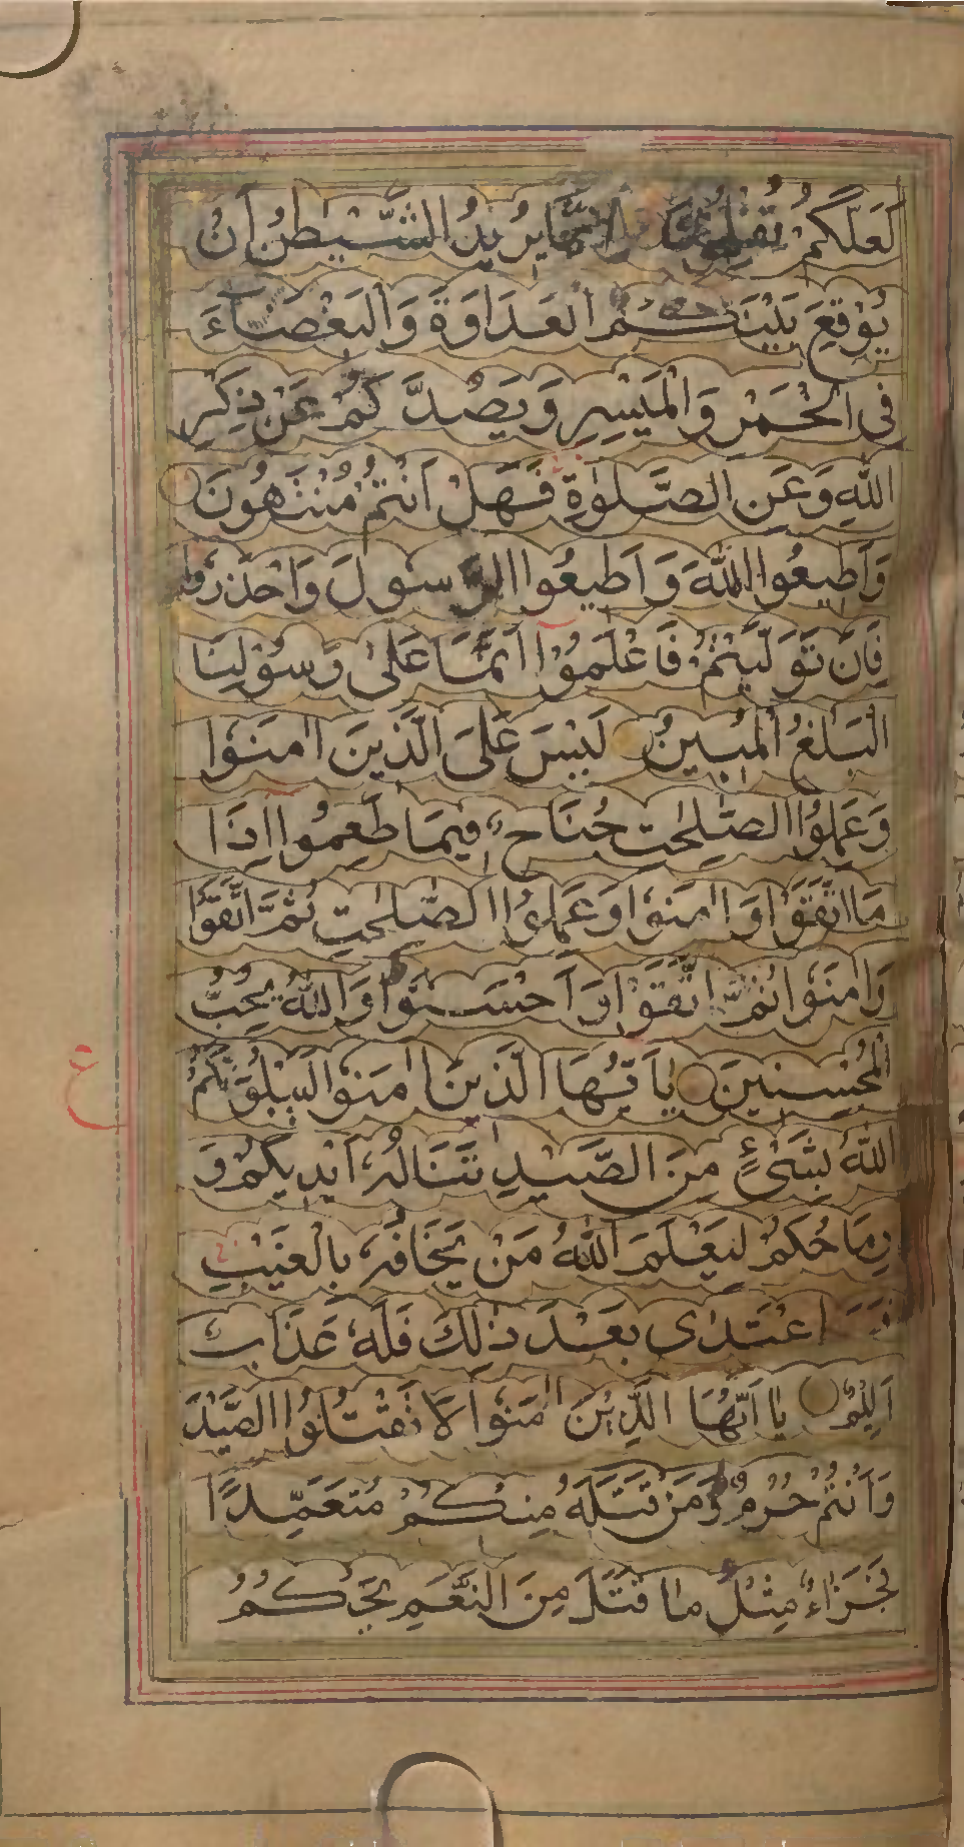 لَعَلَّكُمْ تُفْلِحُونَ اِنَّمَا يُرِيدُ الشَّيْطٰنُ اَنْ
يُوْقِعَ بَيْنَكُمُ الْعَدَاوَةَ وَالْبَغْضَآءَ
فِى الْخَمْرِ وَالْمَيْسِرِ وَيَصُدَّكُمْ عَنْ ذِكْرِ
اللّٰهِ وَعَنِ الصَّلٰوةِ فَهَلْ اَنْتُمْ مُنْتَهُونَ
وَاَطِيعُوا اللّٰهَ وَاَطِيعُوا الرَّسُولَ وَاحْذَرُوا
فَاِنْ تَوَلَّيْتُمْ فَاعْلَمُوْا اَنَّمَا عَلٰى رَسُوْلِنَا
الْبَلٰغُ الْمُبِينُ لَيْسَ عَلَى الَّذِينَ اٰمَنُوْا
وَعَمِلُوا الصّٰلِحٰتِ جُنَاحٌ فِيمَا طَعِمُوا اِذَا
مَا اتَّقَوْا وَاٰمَنُوْا وَعَمِلُوا الصّٰلِحٰتِ ثُمَّ اتَّقَوْا
وَاٰمَنُوْا ثُمَّ اتَّقَوْا وَاَحْسَنُوْا وَاللّٰهُ يُحِبُّ
الْمُحْسِنِينَ يَا اَيُّهَا الَّذِينَ اٰمَنُوْا لَيَبْلُوَنَّكُمُ
اللّٰهُ بِشَىْءٍ مِنَ الصَّيْدِ تَنَالُهُ اَيْدِيكُمْ وَ
رِمَاحُكُمْ لِيَعْلَمَ اللّٰهُ مَنْ يَخَافُهُ بِالْغَيْبِ
فَمَنِ اعْتَدٰى بَعْدَ ذٰلِكَ فَلَهُ عَذَابٌ
اَلِيْمٌ يَا اَيُّهَا الَّذِيْنَ اٰمَنُوْا لَا تَقْتُلُوْا الصَّيْدَ
وَاَنْتُمْ حُرُمٌ وَمَنْ قَتَلَهُ مِنْكُمْ مُتَعَمِّدًا
فَجَزَاءٌ مِثْلُ مَا قَتَلَ مِنَ النَّعَمِ يَحْكُمُ
ع